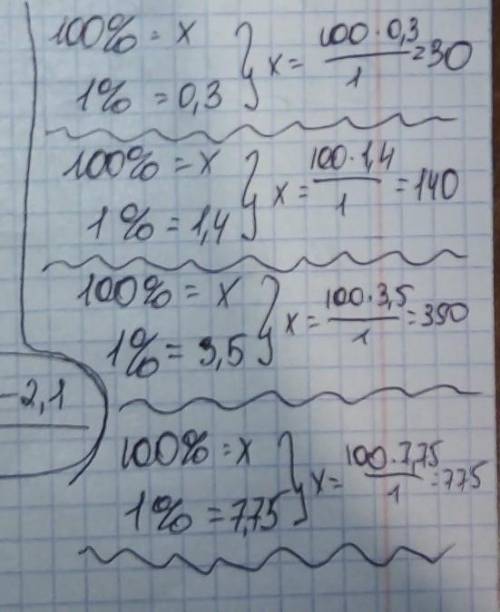 100% = x } x = 100 · 0,3 / 1 = 30
1% = 0,3
100% = x } x = 100 · 1,4 / 1 = 140
1% = 1,4
100% = x } x = 100 · 3,5 / 1 = 350
1% = 3,5
-2,1
100% = x } x = 100 · 7,75 / 1 = 775
1% = 7,75